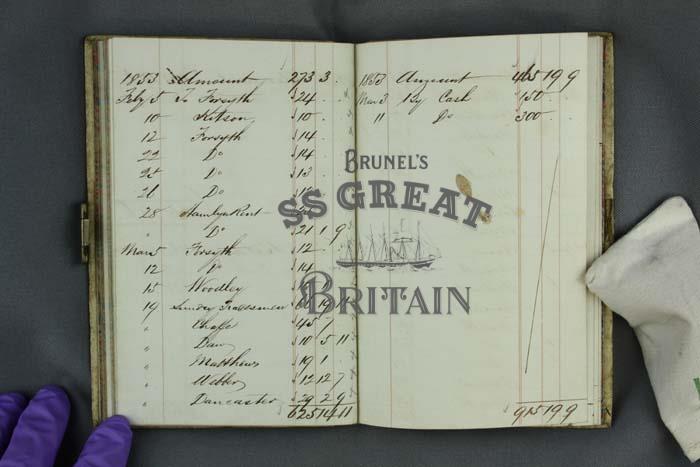 1853 Amount 273 3
Feby 5 To Forsyth 24
10 Kitson 10
12 Forsyth 14
22 Do 14
25 Do 13
26 Do
28 Hamlyn Rent
" Do 21 1 9
Mar 5 Forsyth 12
12 Do 14
15 Woodley
19 Sundry Tradesmen
" Chafe 45 7
" Daw 10 5 11
" Matthews 19 1
" Webber 12 12 7
" Dancaster 29 2 9
625 14 11
1853 Amount 465 19 9
Mar 3 By Cash 150
11 Do 300
915 19 9
BRUNEL'S
SS GREAT
BRITAIN